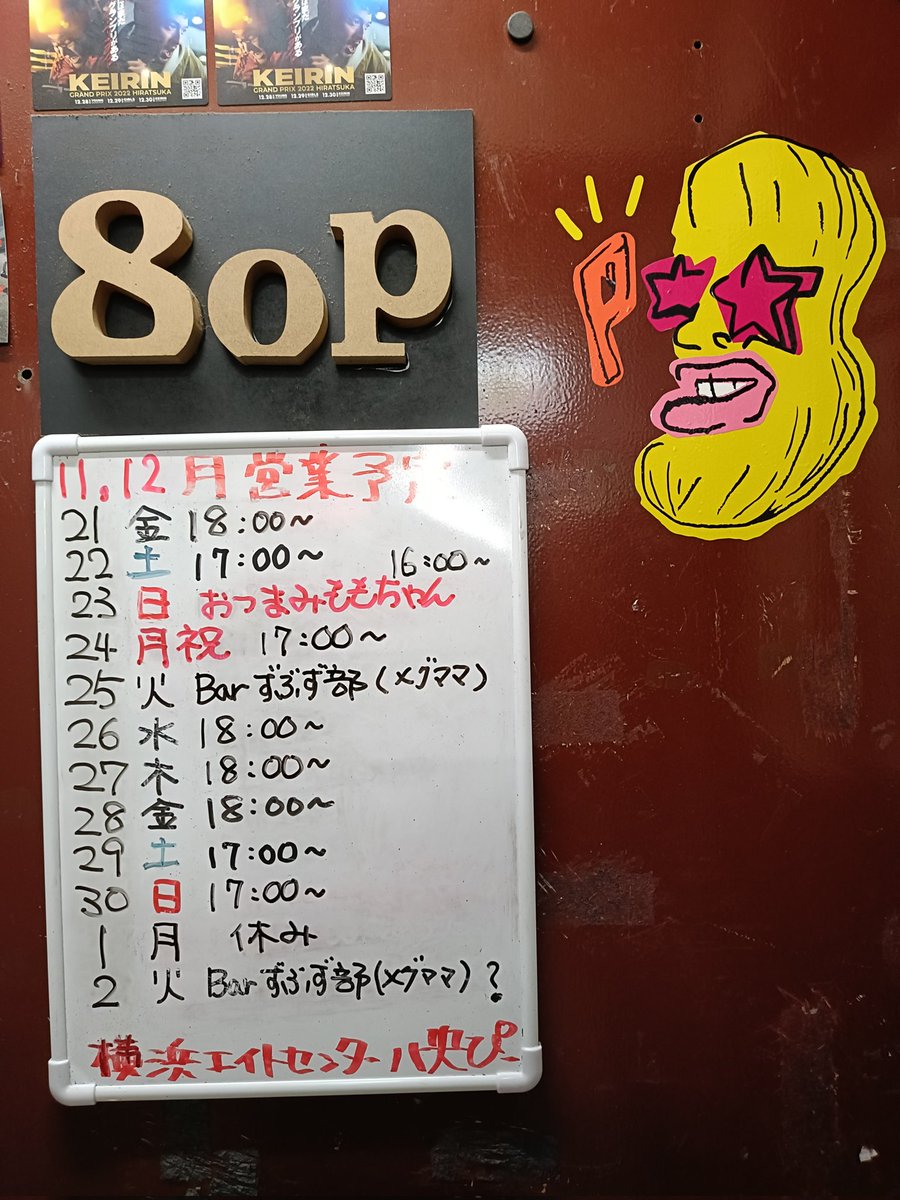 グランプリがある
KEIRIN
GRAND PRIX 2022 HIRATSUKA
グランプリがある
KEIRIN
GRAND PRIX 2022 HIRATSUKA
8op
P
11,12月営業予定
21 金 18:00~
22 土 17:00~ 16:00~
23 日 おつまみももちゃん
24 月祝 17:00~
25 火 Bar ずぶず部(メグママ)
26 水 18:00~
27 木 18:00~
28 金 18:00~
29 土 17:00~
30 日 17:00~
1 月 休み
2 火 Bar ずぶず部(メグママ)?
横浜エイトセンター八央ぴー